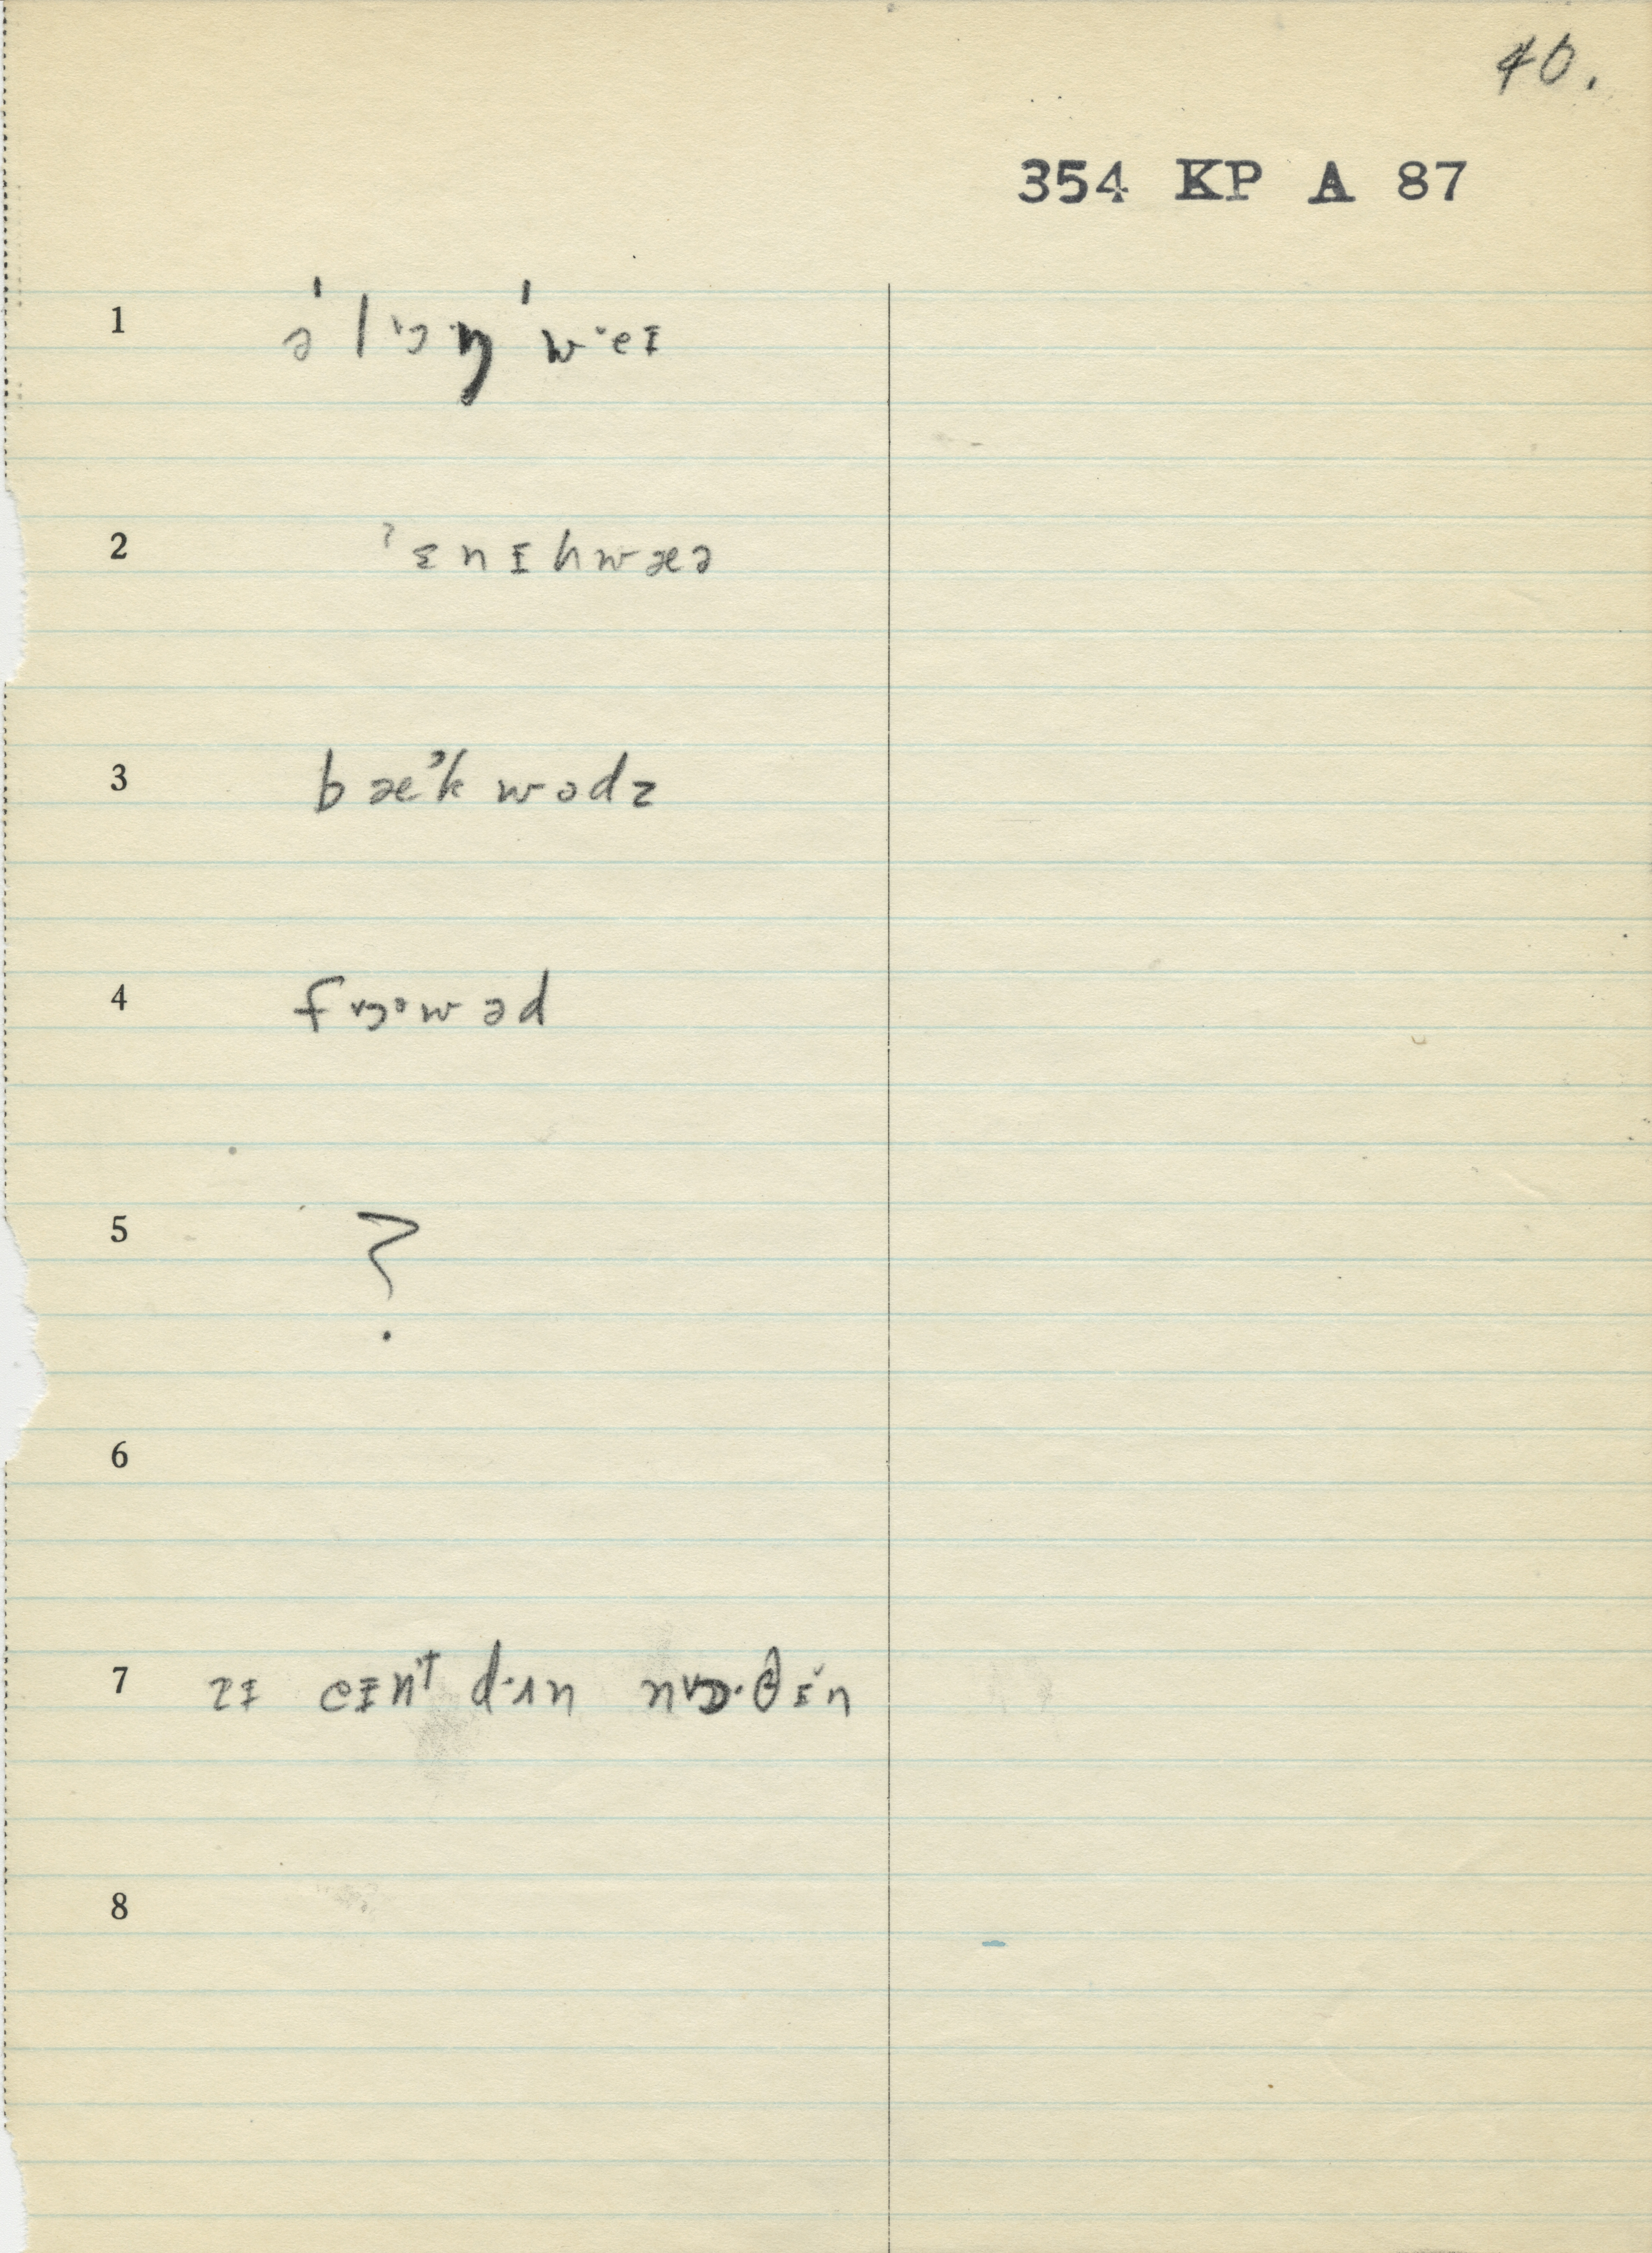 40.
354 KP A 87
1 ə ˈl ɔ ŋ ˈw ˑeɪ
2 ˀɛnɪhwæə
3 bæˀkwədz
4 fɔ˞əwəd
5 ?
6
7 zɪ eɪn't dˑʌn nɔ˞ˑθɪ̆n
8